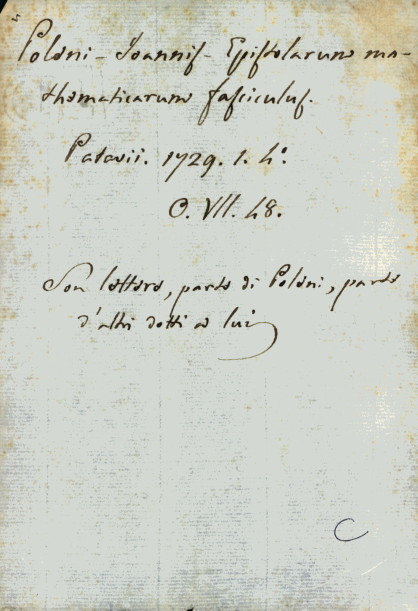 Poleni - Joannis - Epistolarum ma-
thematicarum fasciculus.
Patavii. 1729. 1. 4º.
O. VII. 48.
Son lettere, parte di Poleni, parte
d'altri dotti a lui
C